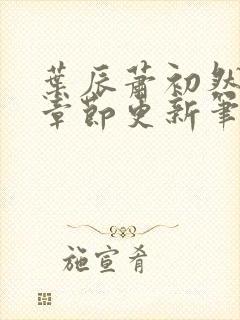 葉辰蕭初然
章節更新筆
施宣肴